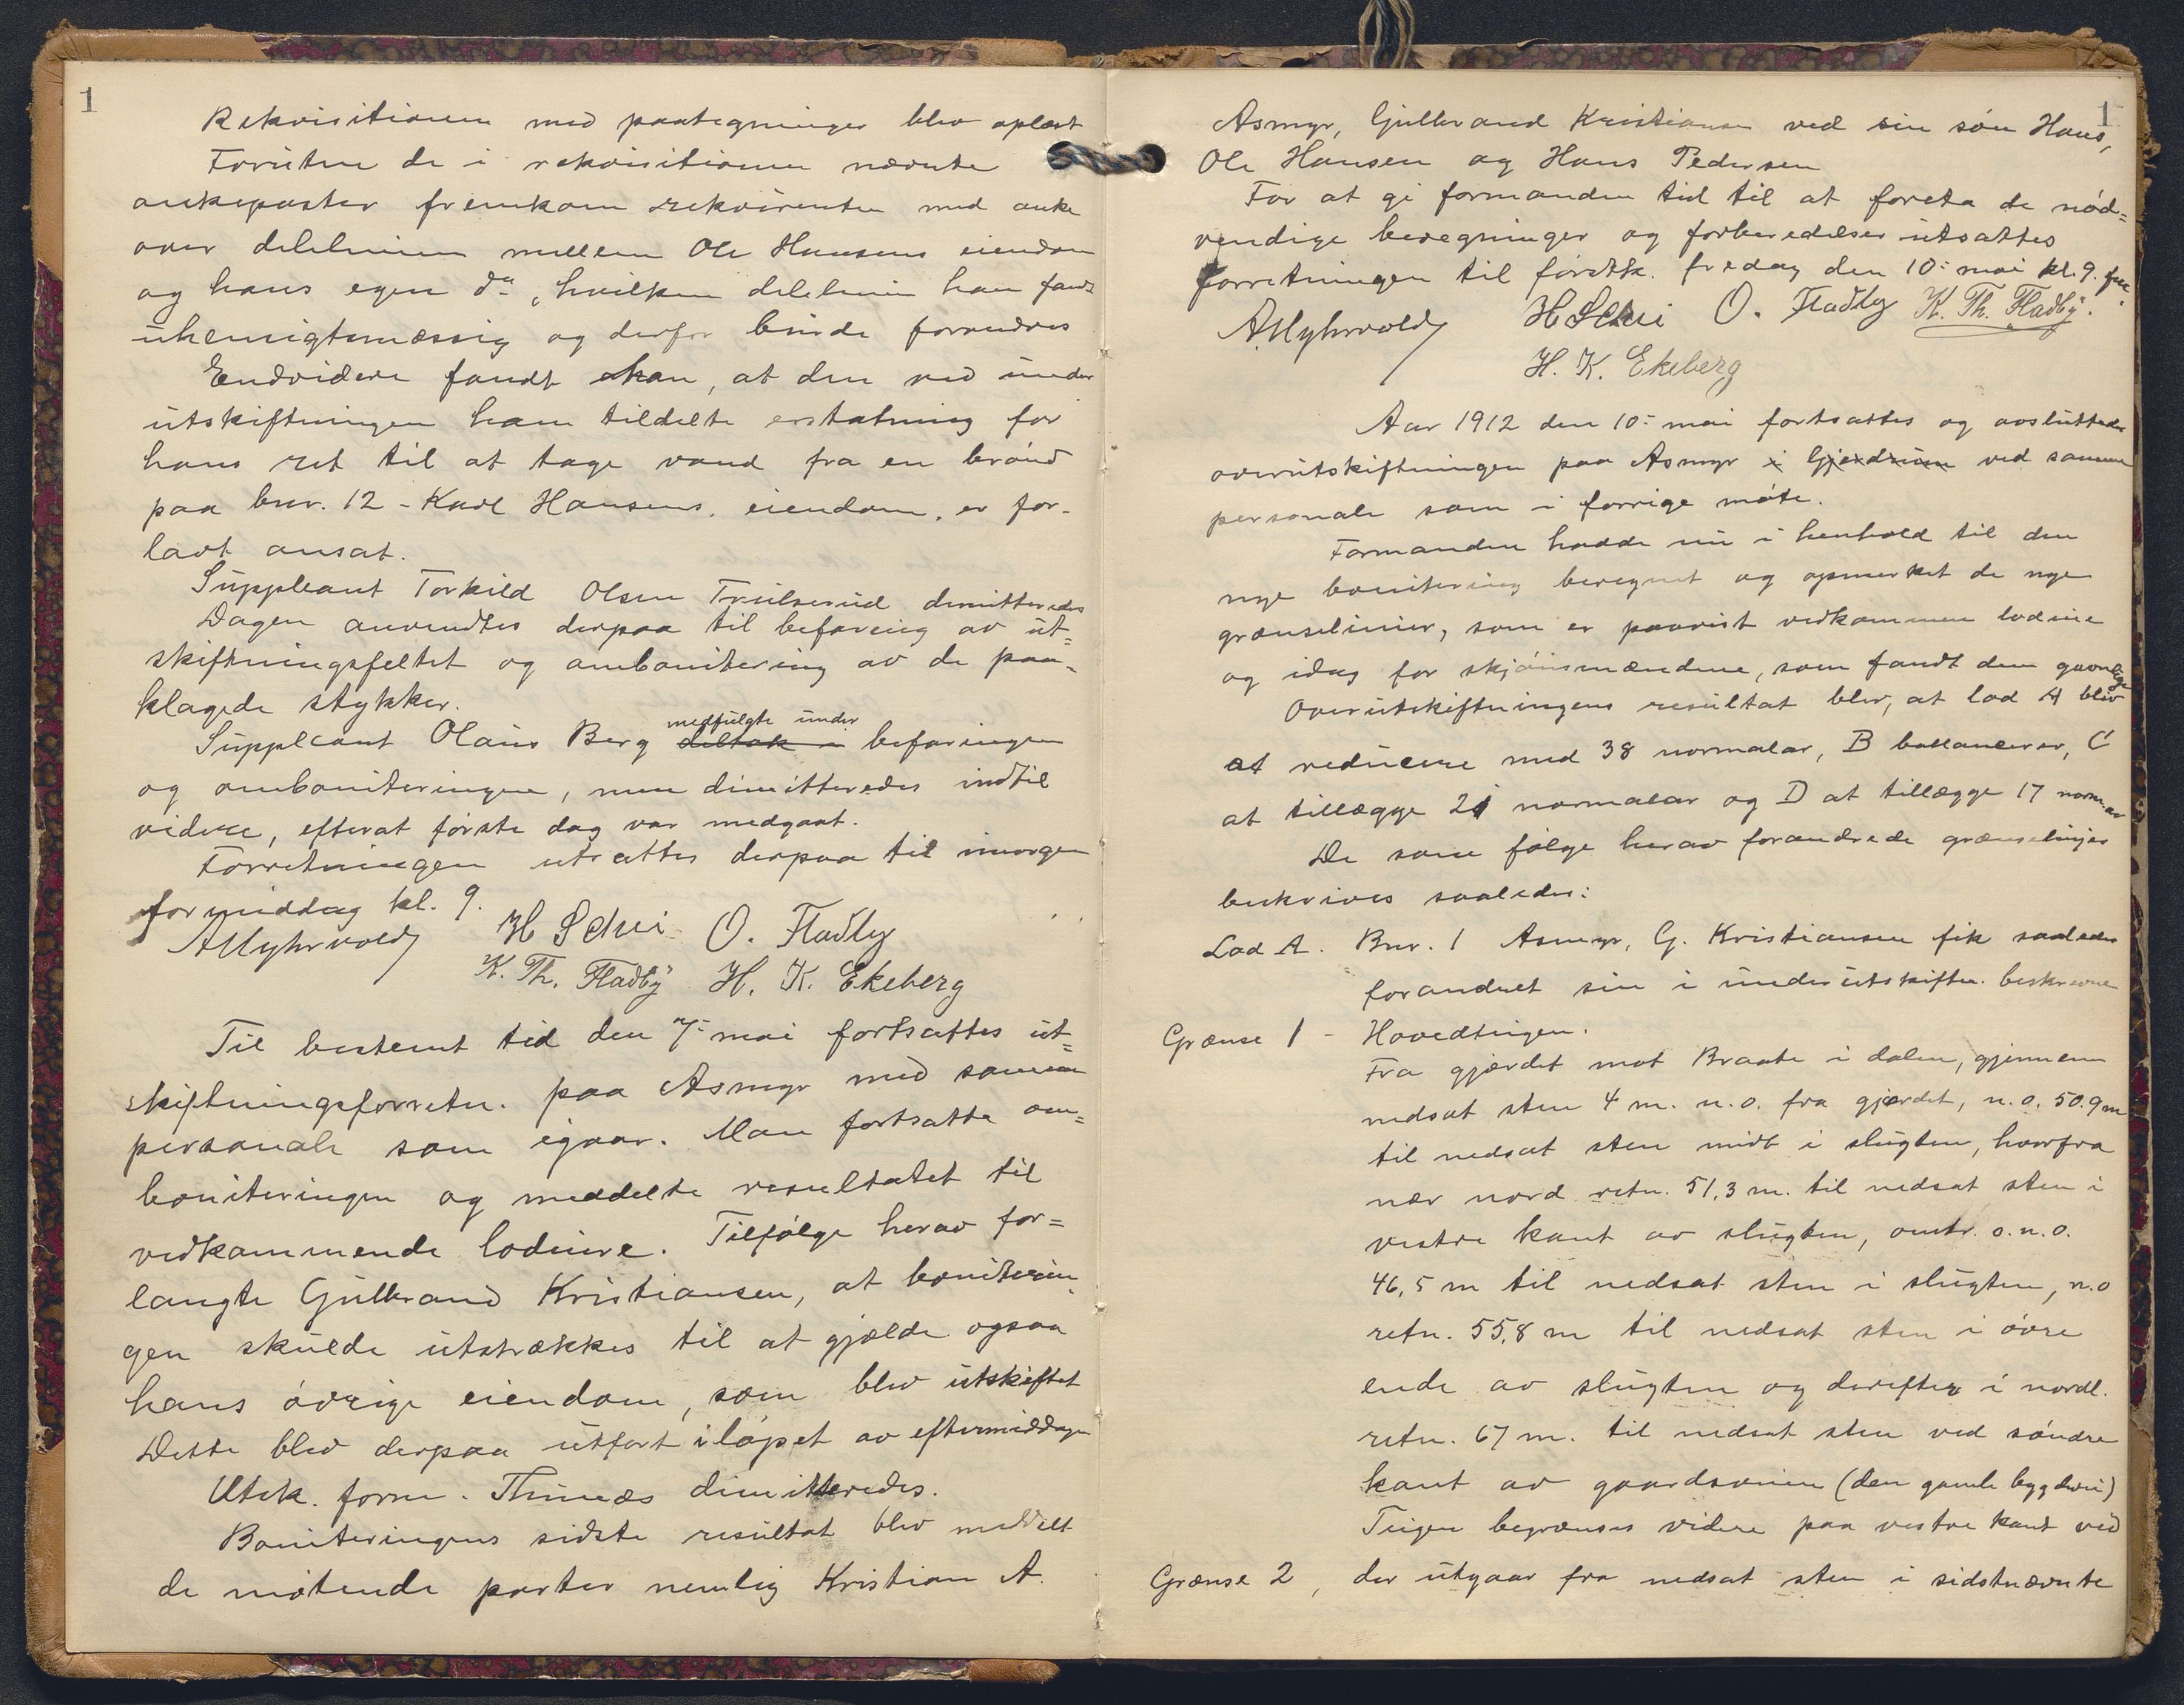 1
Rekvisitionen med paategninger blev oplæst
Foruten de i rekvisitionen nævnte
ankeposter fremkom rekvirenten med anke
over delelinien mellem Ole Hansens eiendom
og hans egen do, hvilken delelinie han fandt
uhensigtsmæssig og derfor burde forandres
Endvidere fandt han, at den ved under
utskiftningen ham tildelte erstatning for
hans ret til at tage vand fra en brønd
paa bnr. 12 - Karl Hansens, eiendom, er for-
lavt ansat.
Suppleant Torkild Olsen Trulserud dimitteredes
Dagen anvendtes derpaa til befaring av ut=
skiftningsfeltet og ombonitering av de paa-
klagede stykker.
medfulgte under
Suppleant Olaus Berg deltok i befaringen
og omboniteringen, men dimitteredes indtil
videre, efterat første dag var medgaat.
Forretningen utsattes derpaa til imorgen
formiddag kl. 9.
A Myhrvold H Schei O. Fladby
K. Th. Fladby H. K. Ekeberg
Til bestemt tid den 7= mai fortsattes ut=
skiftningsforretn. paa Asmyr med samme
personale som igaar. Man fortsatte om=
boniteringen og meddelte resultatet til
vedkommende lodeiere. Tilfølge herav for=
langte Gulbrand Kristiansen, at boniterin-
gen skulde utstrækkes til at gjælde ogsaa
hans øvrige eiendom, som blev utskiftet
Dette blev derpaa utført i løpet av eftermiddagen
Utsk. form. Thinnæs dimitteredes.
Boniteringens sidste resultat blev meddelt
de møtende parter nemlig Kristian A.
1
Asmyr, Gulbrand Kristiansen ved sin søn Hans,
Ole Hansen og Hans Pedersen
For at gi formanden tid til at foreta de nød=
vendige beregninger og forberedelser utsattes
forretningen til førstk. fredag den 10= mai kl. 9. fm.
A Myhrvold H Schei O. Fladby K. Th. Fladby.
H. K. Ekeberg
Aar 1912 den 10= mai fortsattes og avsluttedes
overutskiftningen paa Asmyr i Gjerdrum ved samme
personale som i forrige møte.
Formanden hadde nu i henhold til den
nye bonitering beregnet og opmerket de nye
grænselinier, som er paavist vedkommen lodeiere
og idag for skjønsmændene, som fandt dem gavnlige
Overutskiftningens resultat blev, at lod A blev
at reducere med 38 normalar, B ballancerer, C
at tillægge 21 normalar og D at tillægge 17 normalar
De som følge herav forandrede grænselinjer
beskrives saaledes:
Lod A. Bnr. 1 Asmyr, G. Kristiansen fik saaledes
forandret sin i underutskiftn. beskrevne
Grænse 1 - Hovedteigen.
Fra gjærdet mot Braate i dalen, gjennem
nedsat sten 4 m. n.o. fra gjærdet, n.o. 50.9 m
til nedsat sten midt i slugten, hvorfra
nær nord retn. 51,3 m. til nedsat sten i
vestre kant av slugten, omtr. o.n.o.
46,5 m til nedsat sten i slugten, n.o
retn. 55,8 m til nedsat sten i øvre
ende av slugten og derefter i nordl.
retn. 67 m. til nedsat sten ved søndre
kant av gaardsveien (den gamle bygdevei)
Teigen begrænses videre paa vestre kant ved
Grænse 2, der utgaar fra nedsat sten i sidstnævnte